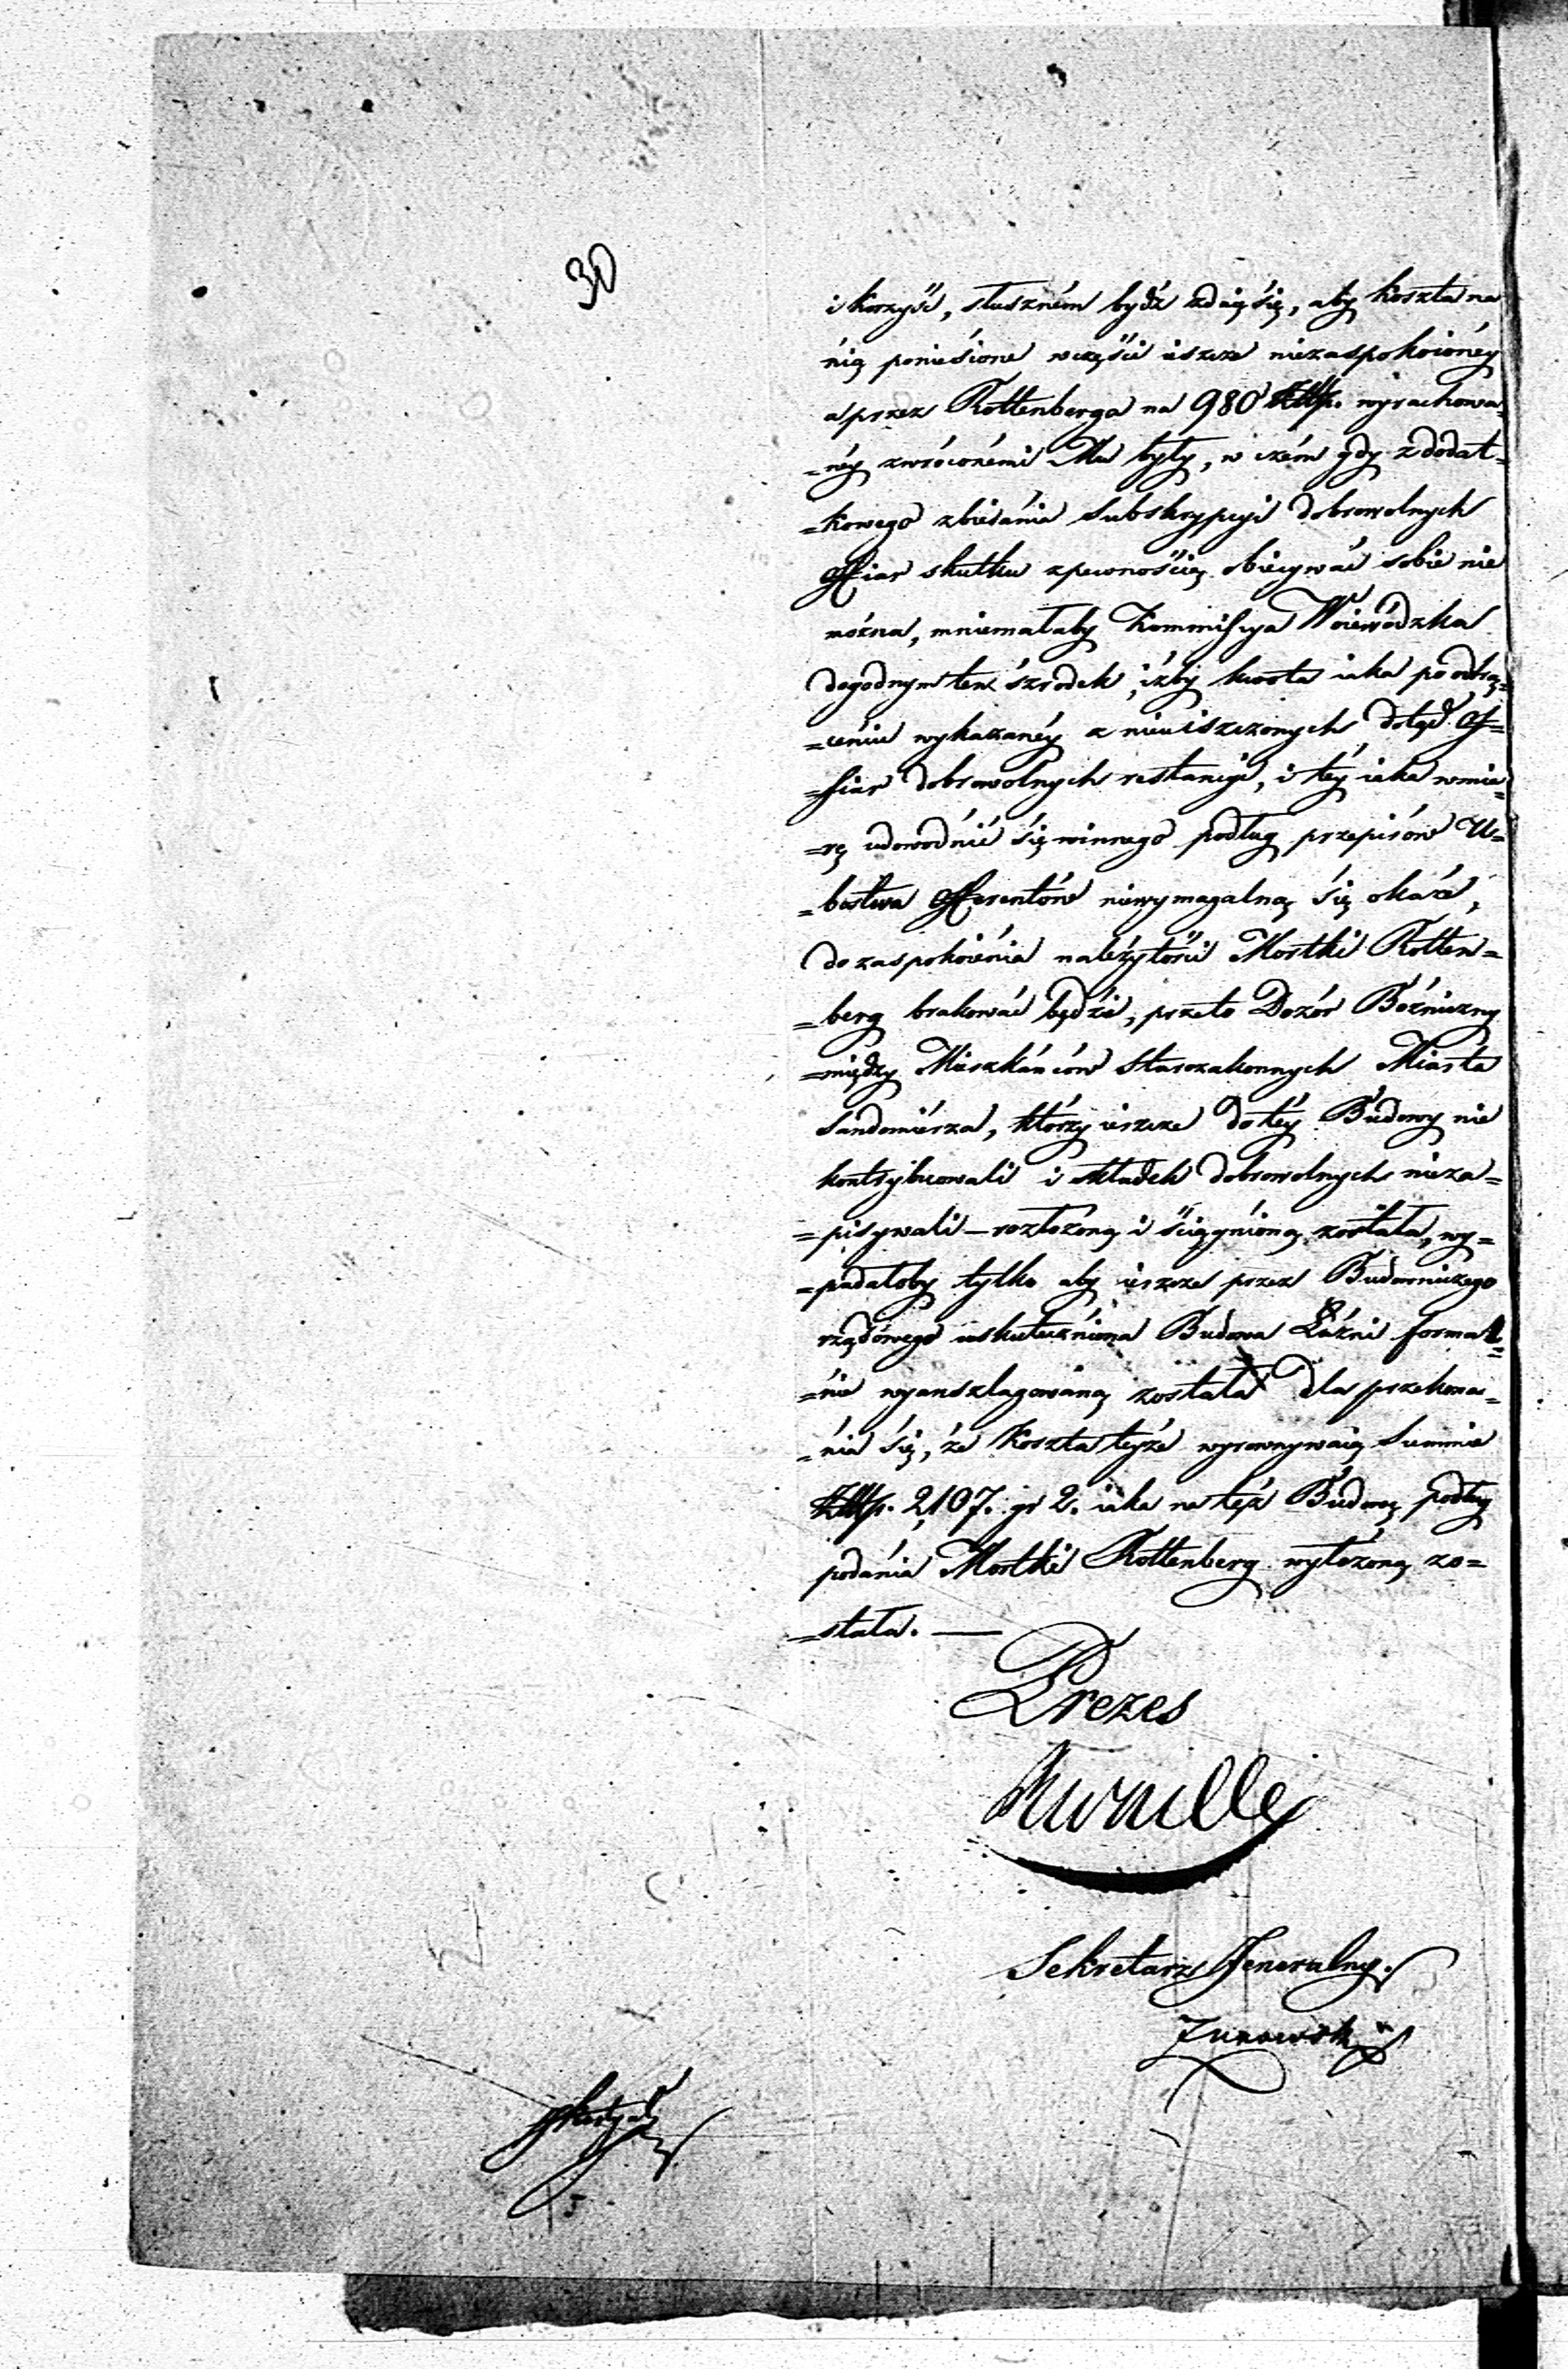 30
i korzyść, słuszném bydź zdaię się, aby koszta na
nią poniesione w części ieszcze niezaspokoionéy
a przez Rottenberga na 980 Złłp. wyrachowa-
=néy zwróconémi Mu były, w czém gdy z dodat=
=kowego zbierania Subskrypcyi dobrowolnych
Offiar skutku z pewnością obiecywać sobie nie
można, mniemałaby Kommissya Woiewódzka
dogodnym ten szrodek, iżby kwota iaka po odtrą=
=ceniu wykazanéy z nieuiszczonych dotąd Of=
=fiar dobrowolnych restancyi, i téy iaka w mia=
=rę udowodnić się winnego podług przepisów U=
=bóstwa Offerentów niewymagalną się okaże,
do zaspokoienia należytości Mostki Rotten=
=berg brakować będzie, przeto Dozór Bóżniczny
=między Mieszkańców Starozakonnych Miasta
Sandomierza, którzy ieszcze do téy Budowy nie
kontrybuowali i składek dobrowolnych nieza=
=pisywali – rozłożoną i ściągnioną została, wy=
=padałoby tylko aby ieszcze przez Budowniczego
rządowego uskuteczniona Budowa Łaźni formal=
=nie wyanszlagowaną została dla przekona=
=nia się, że Koszta teyże wyrownywaią Summie
Złłp. 2,107. gr 2. iaka na też Budowę podług
podania Mostki Rottenberg wyłożoną zo=
=stała. —
Prezes
Sekretarz Jeneralny.